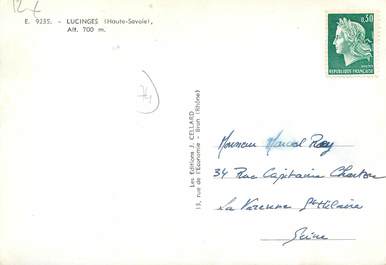 E. 9235. - LUCINGES (Haute-Savoie),
Alt. 700 m.
0,30
74
Les Editions J. CELLARD
15, rue de l'Economie - Bron (Rhône)
Monsieur Marcel Roy
34 Rue Capitaine Charton
La Varenne St Hilaire
Seine